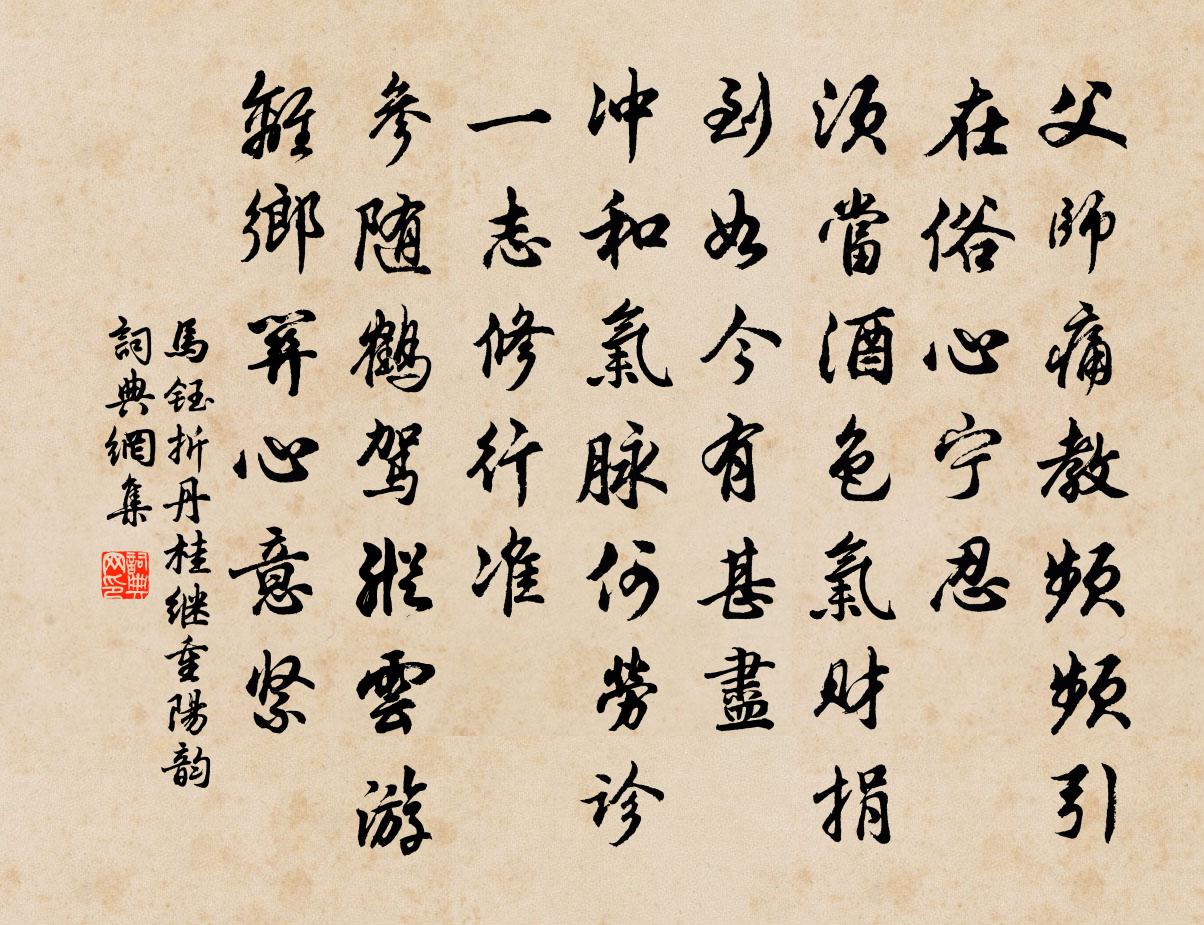 父師痛教頻頻引
在俗心宁忍
須當酒色氣财捐
到如今有甚盡
冲和氣脉何勞診
一志修行准
參随鶴駕縱雲游
離鄉算心意緊
馬鈺折丹桂继重陽韵
詞典網集
詞典网印